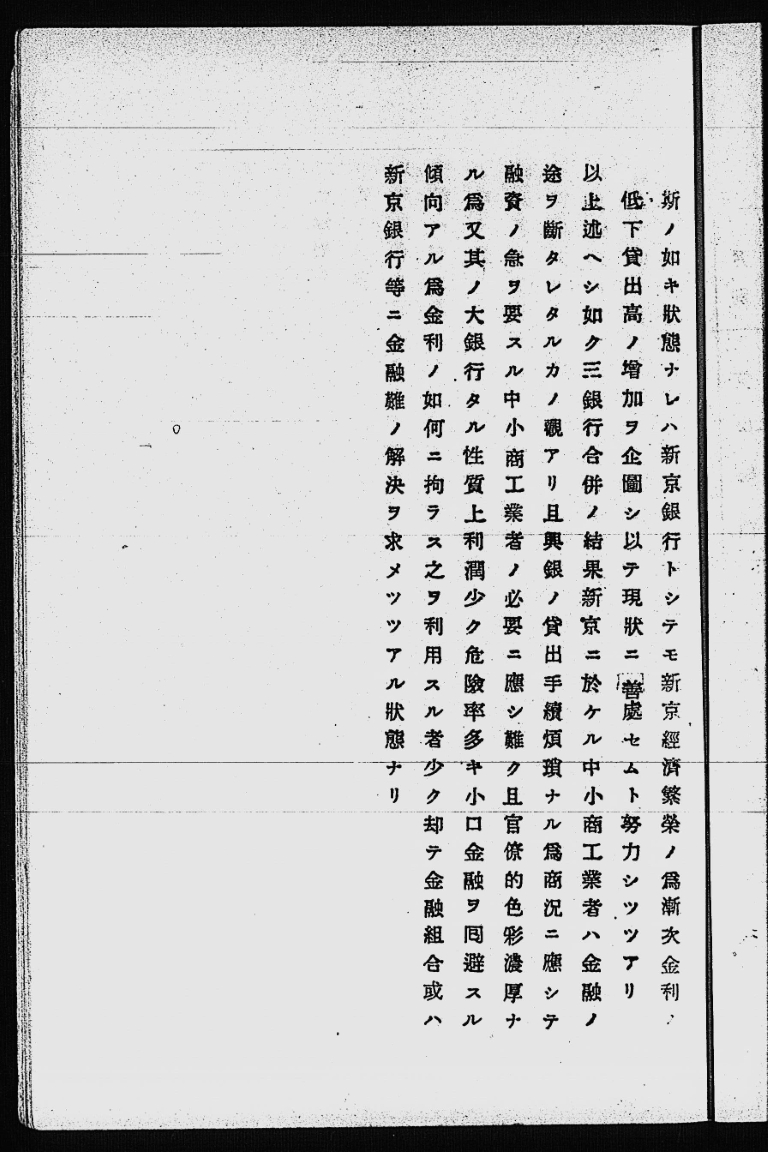 斯ノ如キ狀態ナレハ新京銀行トシテモ新京經濟繁榮ノ爲漸次金利ノ
低下貸出高ノ增加ヲ企圖シ以テ現狀ニ善處セムト努力シツツアリ
以上述ヘシ如ク三銀行合併ノ結果新京ニ於ケル中小商工業者ハ金融ノ
途ヲ斷タレタルカノ觀アリ且興銀ノ貸出手續煩瑣ナル爲商況ニ應シテ
融資ノ急ヲ要スル中小商工業者ノ必要ニ應シ難ク且官僚的色彩濃厚ナ
ル爲又其ノ大銀行タル性質上利潤少ク危險率多キ小口金融ヲ囘避スル
傾向アル爲金利ノ如何ニ拘ラス之ヲ利用スル者少ク却テ金融組合或ハ
新京銀行等ニ金融難ノ解決ヲ求メツツアル狀態ナリ